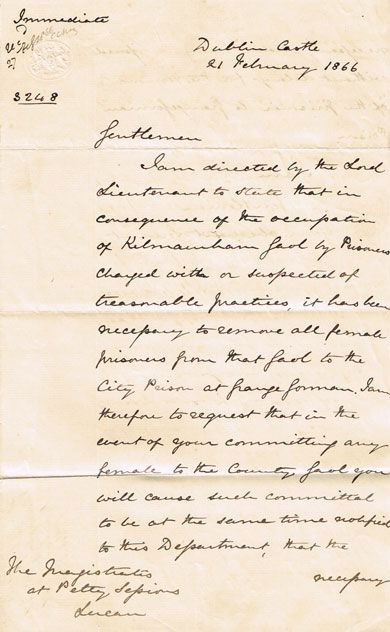 Immediate
3248
Dublin Castle
21 February 1866
Gentlemen
I am directed by the Lord
Lieutenant to state that in
consequence of the occupation
of Kilmainham Gaol by Prisoners
charged with or suspected of
treasonable practices, it has been
necessary to remove all female
prisoners from that Gaol to the
City Prison at Grangegorman. I am
therefore to request that in the
event of your committing any
female to the County Gaol you
will cause such committal
to be at the same time notified
to this Department, that the
necessary
The Magistrates
at Petty Sessions
Lucan